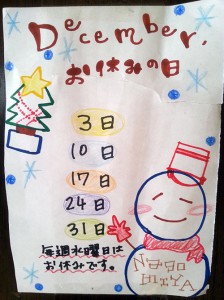 December.
お休みの日
3日
10日
17日
24日
31日
毎週水曜日は
お休みです。
Nago
miyA